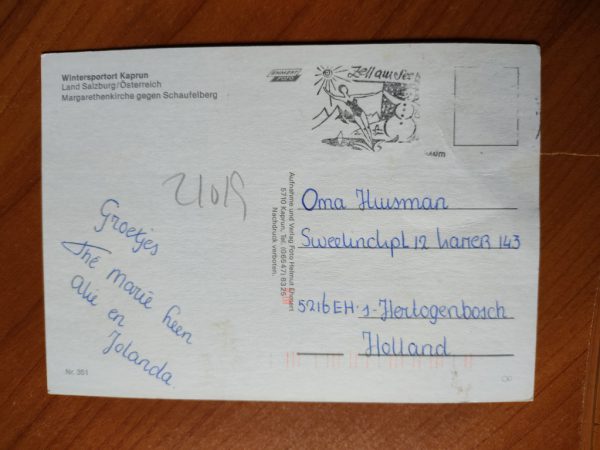 Wintersportort Kaprun
Land Salzburg/Österreich
Margarethenkirche gegen Schaufelberg
Zell am See
Aufnahme und Verlag Foto Helmut Ehnert
5710 Kaprun, Tel. (06547) 8325
Nachdruck verboten.
Groetjes
Thé Marie heen
Alie en
Jolanda.
Oma Huisman
Sweelinckpl 12 kamer 143
5216EH·s-Hertogenbosch
Holland
Nr. 351